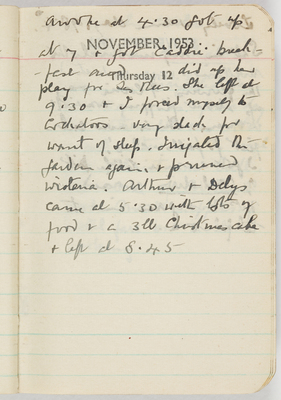 awoke at 4.30 got up
at 7 & got Caddie break-
NOVEMBER 1953
-fast and did up her
Thursday 12
play for Is Rees. She left at
9.30 & I forced myself to
Cockatoos very dead for
want of sleep. Irrigated the
garden again & pruned
wisteria. Arthur & Delys
came at 5.30 with lots of
food & a 3lb Christmas cake
& left at 8.45